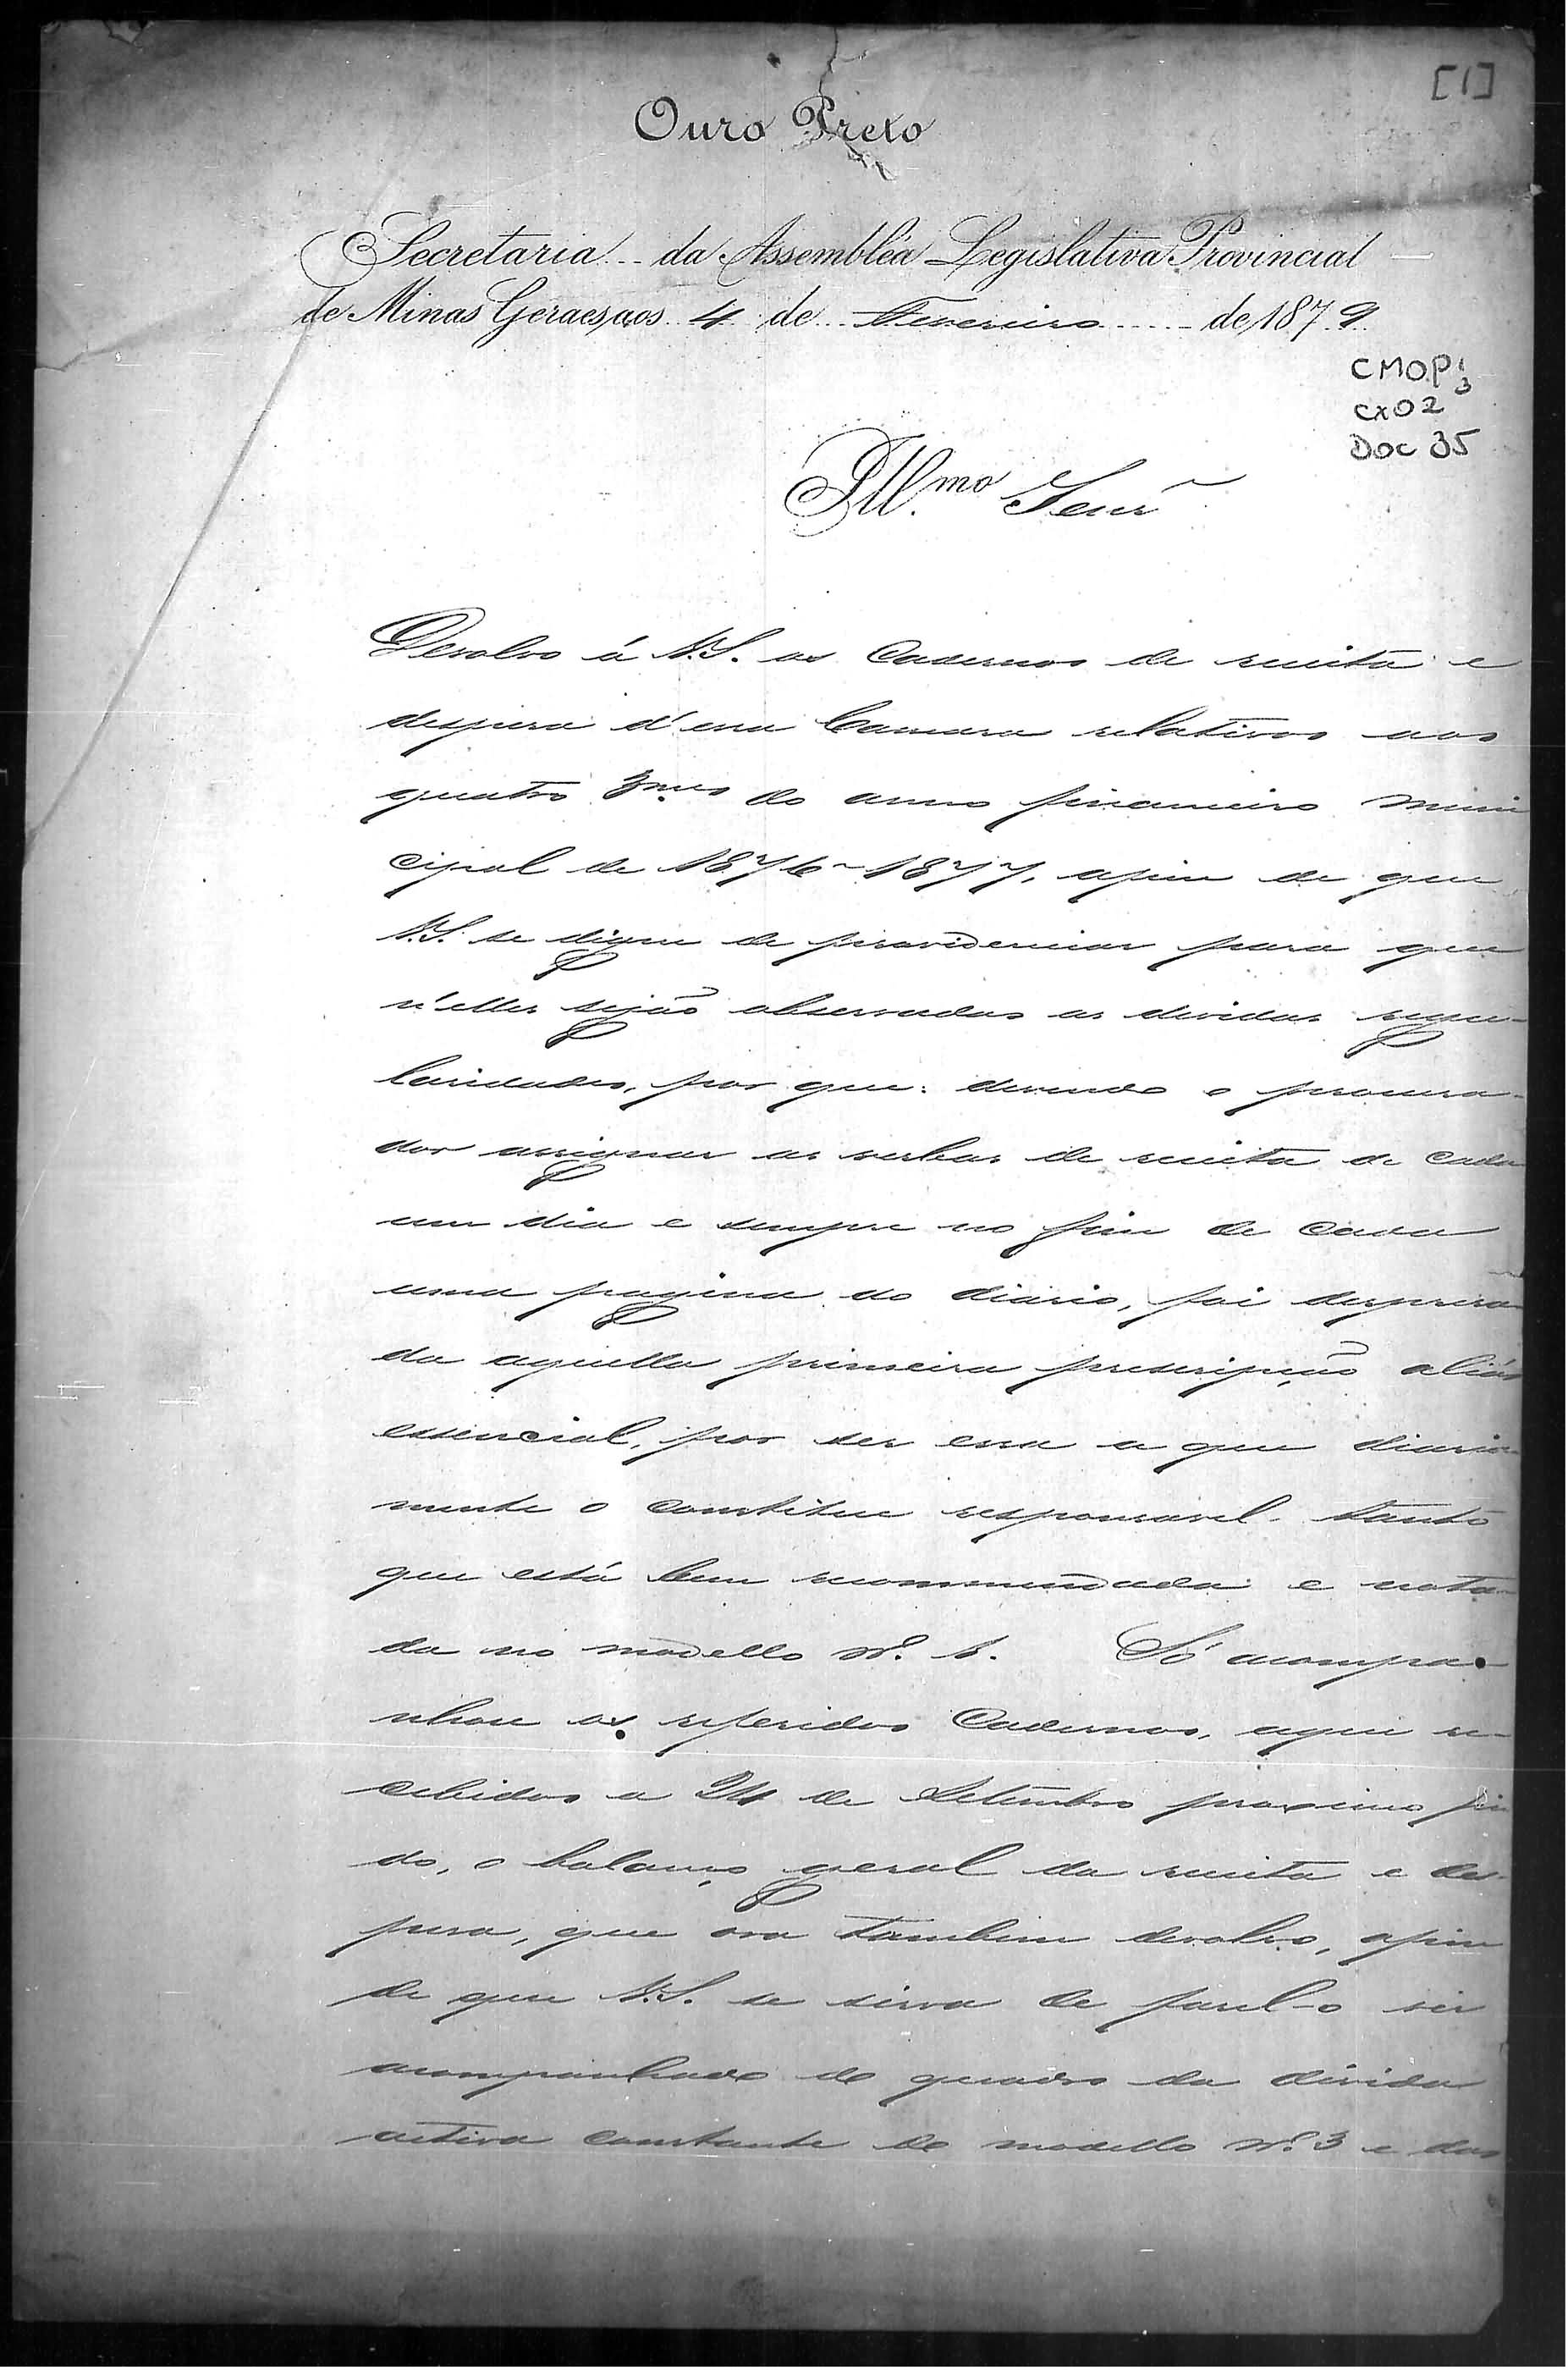 [1]
Ouro Preto
Secretaria da Assembléa Legislativa Provincial
de Minas Geraes, aos 4 de Fevereiro de 1879.
CMOP
3
CX 02
DOC 35
Ill.mo Senr
Devolvo á V.S. os Cadernos de receita e
despesa d'essa Camara relativos aos
quatro 3.mes do anno financeiro muni
cipal de 1876-1877, afim de que
V.S. se digne de providenciar para que
n'elles sejão observadas as devidas regu-
laridades, por que: devendo o procura-
dor assignar as verbas de receita de cada
um dia e sempre no fim de cada
uma pagina do diario, foi despresa
da aquella primeira prescripção aliás
essencial, por ser essa a que diaria-
mente o constitue responsavel tanto
que está bem recommendada e nota-
da no modello Nº. 1. Só acompa-
nhou os referidos Cadernos, aqui re-
cebidos a 24 de Setembro proximo fin
do, o balanço geral da receita e des-
pesa, que ora tambem devolvo, afim
de que V.S. se sirva de fasel-o vir
acompanhado do quadro da divida
activa constante do modello Nº. 3 e das